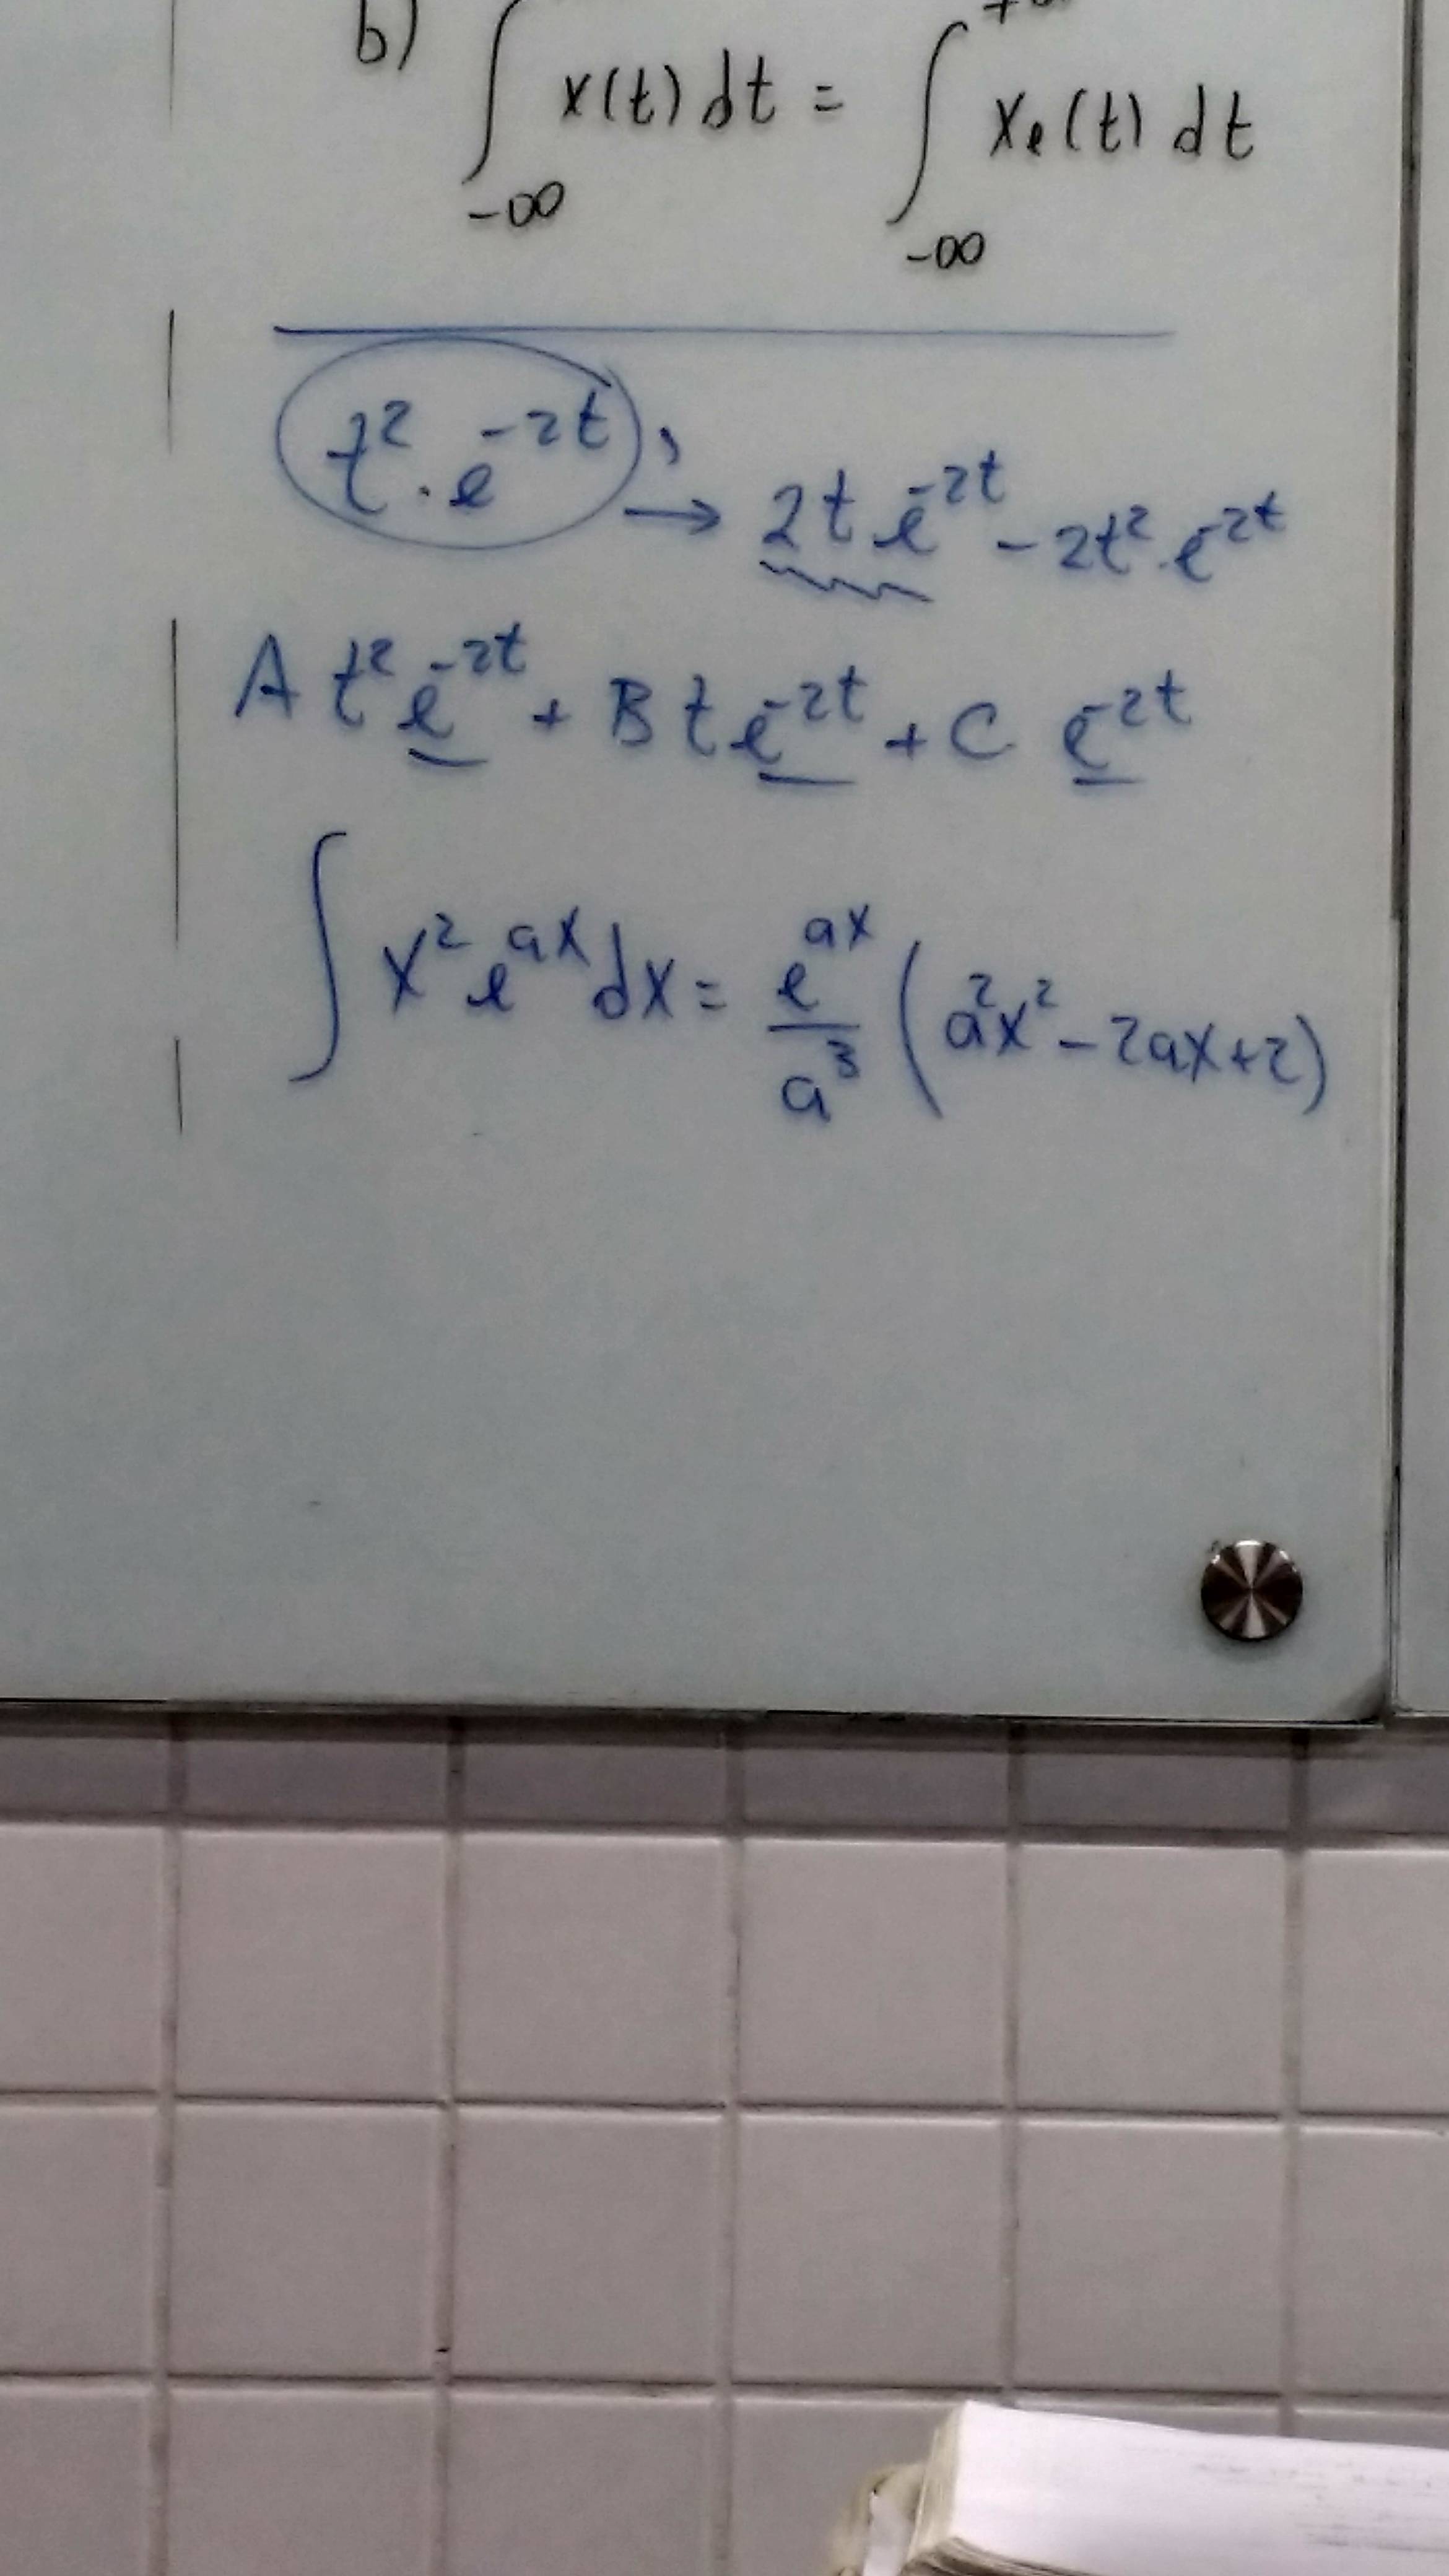 b) ∫_{-∞} x(t) dt = ∫_{-∞}^{+∞} x_e(t) dt
t² · e^{-2t}, → 2t e^{-2t} - 2t² · e^{-2t}
A t² e^{-2t} + B t e^{-2t} + C e^{-2t}
∫ x² e^{ax} dx = e^{ax}/a³ (a²x² - 2ax + 2)